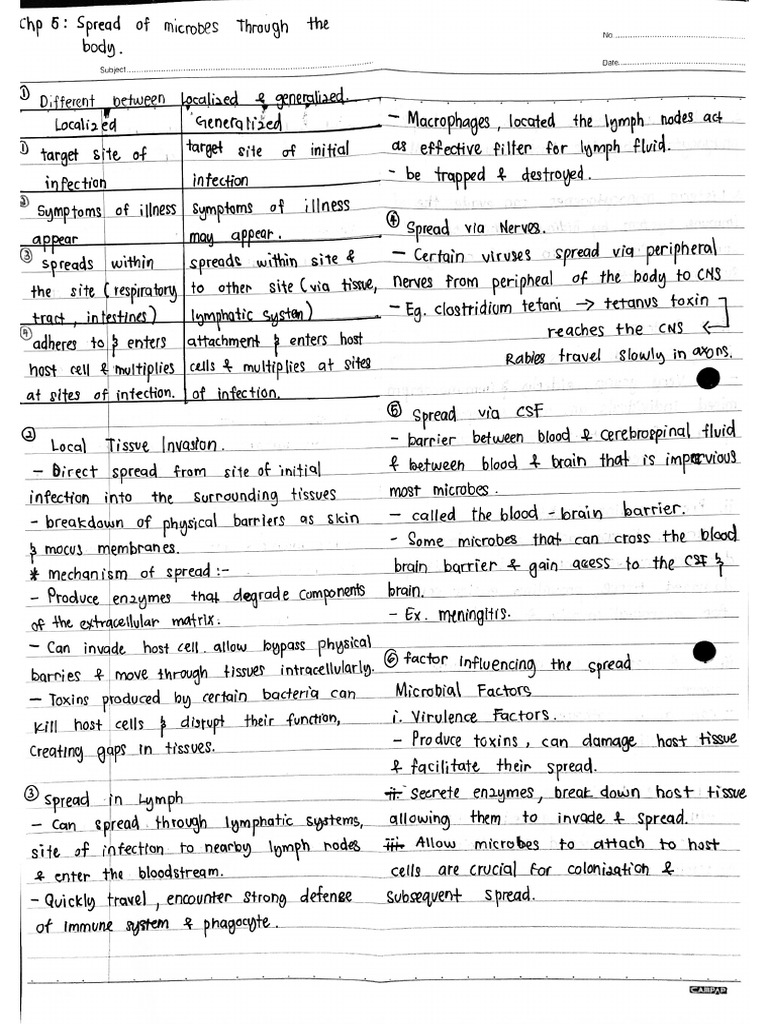 Chp 5: Spread of microbes Through the
body.
No
Date
Subject
① Different between localized & generalized.
Localized
Generalized
① target site of
infection
target site of initial
infection
② Symptoms of illness
appear
symptoms of illness
may appear.
③ spreads within
the site (respiratory
tract, intestines)
spreads within site &
to other site (via tissue,
lymphatic system)
④ adheres to & enters
host cell & multiplies
at sites of infection.
attachment & enters host
cells & multiplies at sites
of infection.
② Local Tissue Invasion.
- Direct spread from site of initial
infection into the surrounding tissues
- breakdown of physical barriers as skin
& mocus membranes.
* mechanism of spread :-
- Produce enzymes that degrade components
of the extracellular matrix.
- Can invade host cell. allow bypass physical
barries & move through tissues intracellularly.
- Toxins produced by certain bacteria can
kill host cells & disrupt their function,
creating gaps in tissues.
③ Spread in Lymph
- Can spread through lymphatic systems,
site of infection to nearby lymph nodes
& enter the bloodstream.
- Quickly travel, encounter strong defense
of immune system & phagocyte.
- Macrophages, located the lymph nodes act
as effective filter for lymph fluid.
- be trapped & destroyed.
④ Spread via Nerves.
- Certain viruses spread via peripheral
nerves from peripheal of the body to CNS
- Eg. clostridium tetani → tetanus toxin
reaches the CNS ←
Rabies travel slowly in axons.
⑤ Spread via CSF
- barrier between blood & cerebrospinal fluid
& between blood & brain that is impervious
most microbes.
- called the blood-brain barrier.
- Some microbes that can cross the blood
brain barrier & gain acess to the CSF &
brain.
- Ex. meningitis.
⑥ factor influencing the spread
Microbial Factors
i. Virulence Factors.
- Produce toxins, can damage host tissue
& facilitate their spread.
ii. Secrete enzymes, break down host tissue
allowing them to invade & spread.
iii. Allow microbes to attach to host
cells are crucial for colonization &
subsequent spread.
CAMPAP